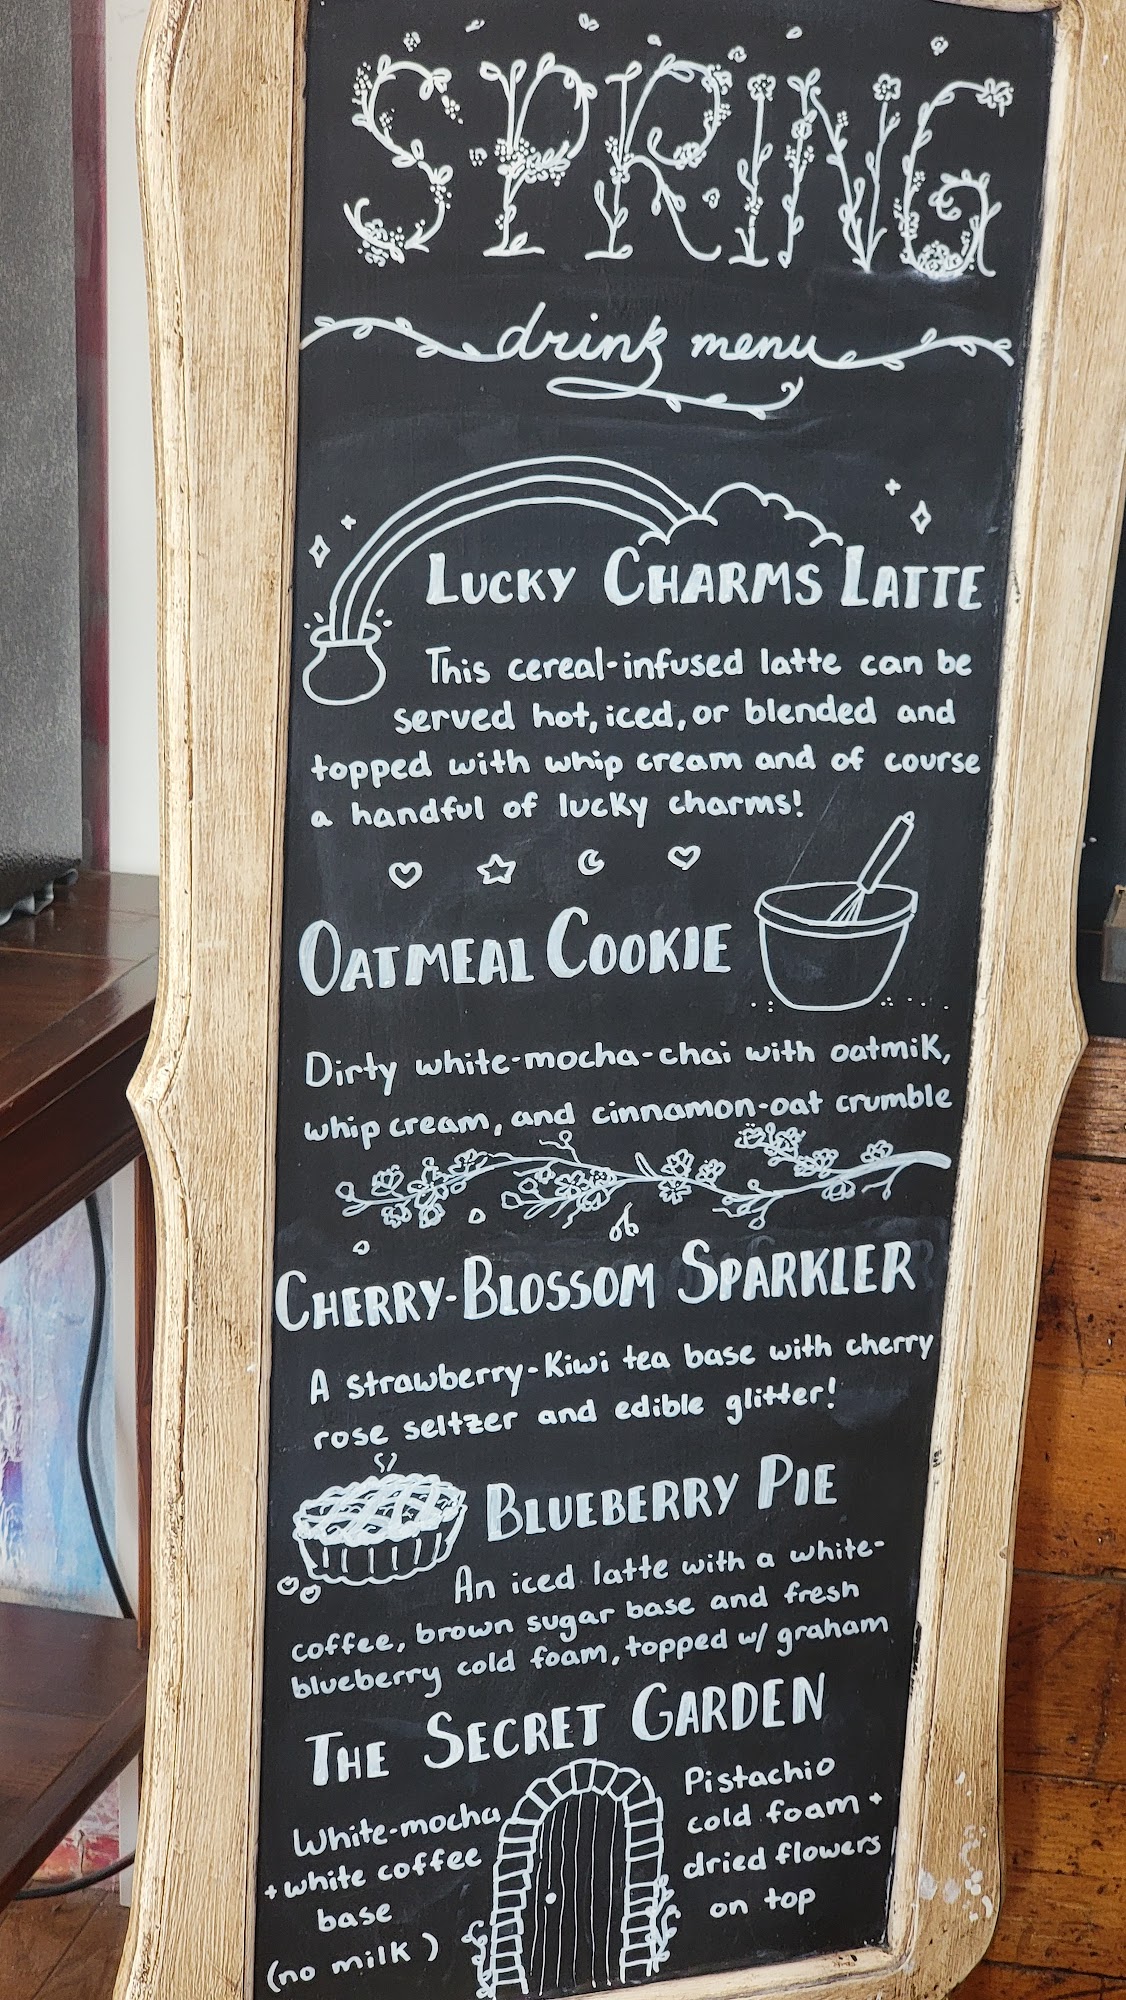 SPRING
drink menu
LUCKY CHARMS LATTE
This cereal-infused latte can be
served hot, iced, or blended and
topped with whip cream and of course
a handful of lucky charms!
OATMEAL COOKIE
Dirty white-mocha-chai with oatmiK,
whip cream, and cinnamon-oat crumble
CHERRY-BLOSSOM SPARKLER
A strawberry-Kiwi tea base with cherry
rose seltzer and edible glitter!
BLUEBERRY PIE
An iced latte with a white-
coffee, brown sugar base and fresh
blueberry cold foam, topped w/ graham
THE SECRET GARDEN
White-mocha
+ white coffee
base
(no milk)
Pistachio
cold foam +
dried flowers
on top